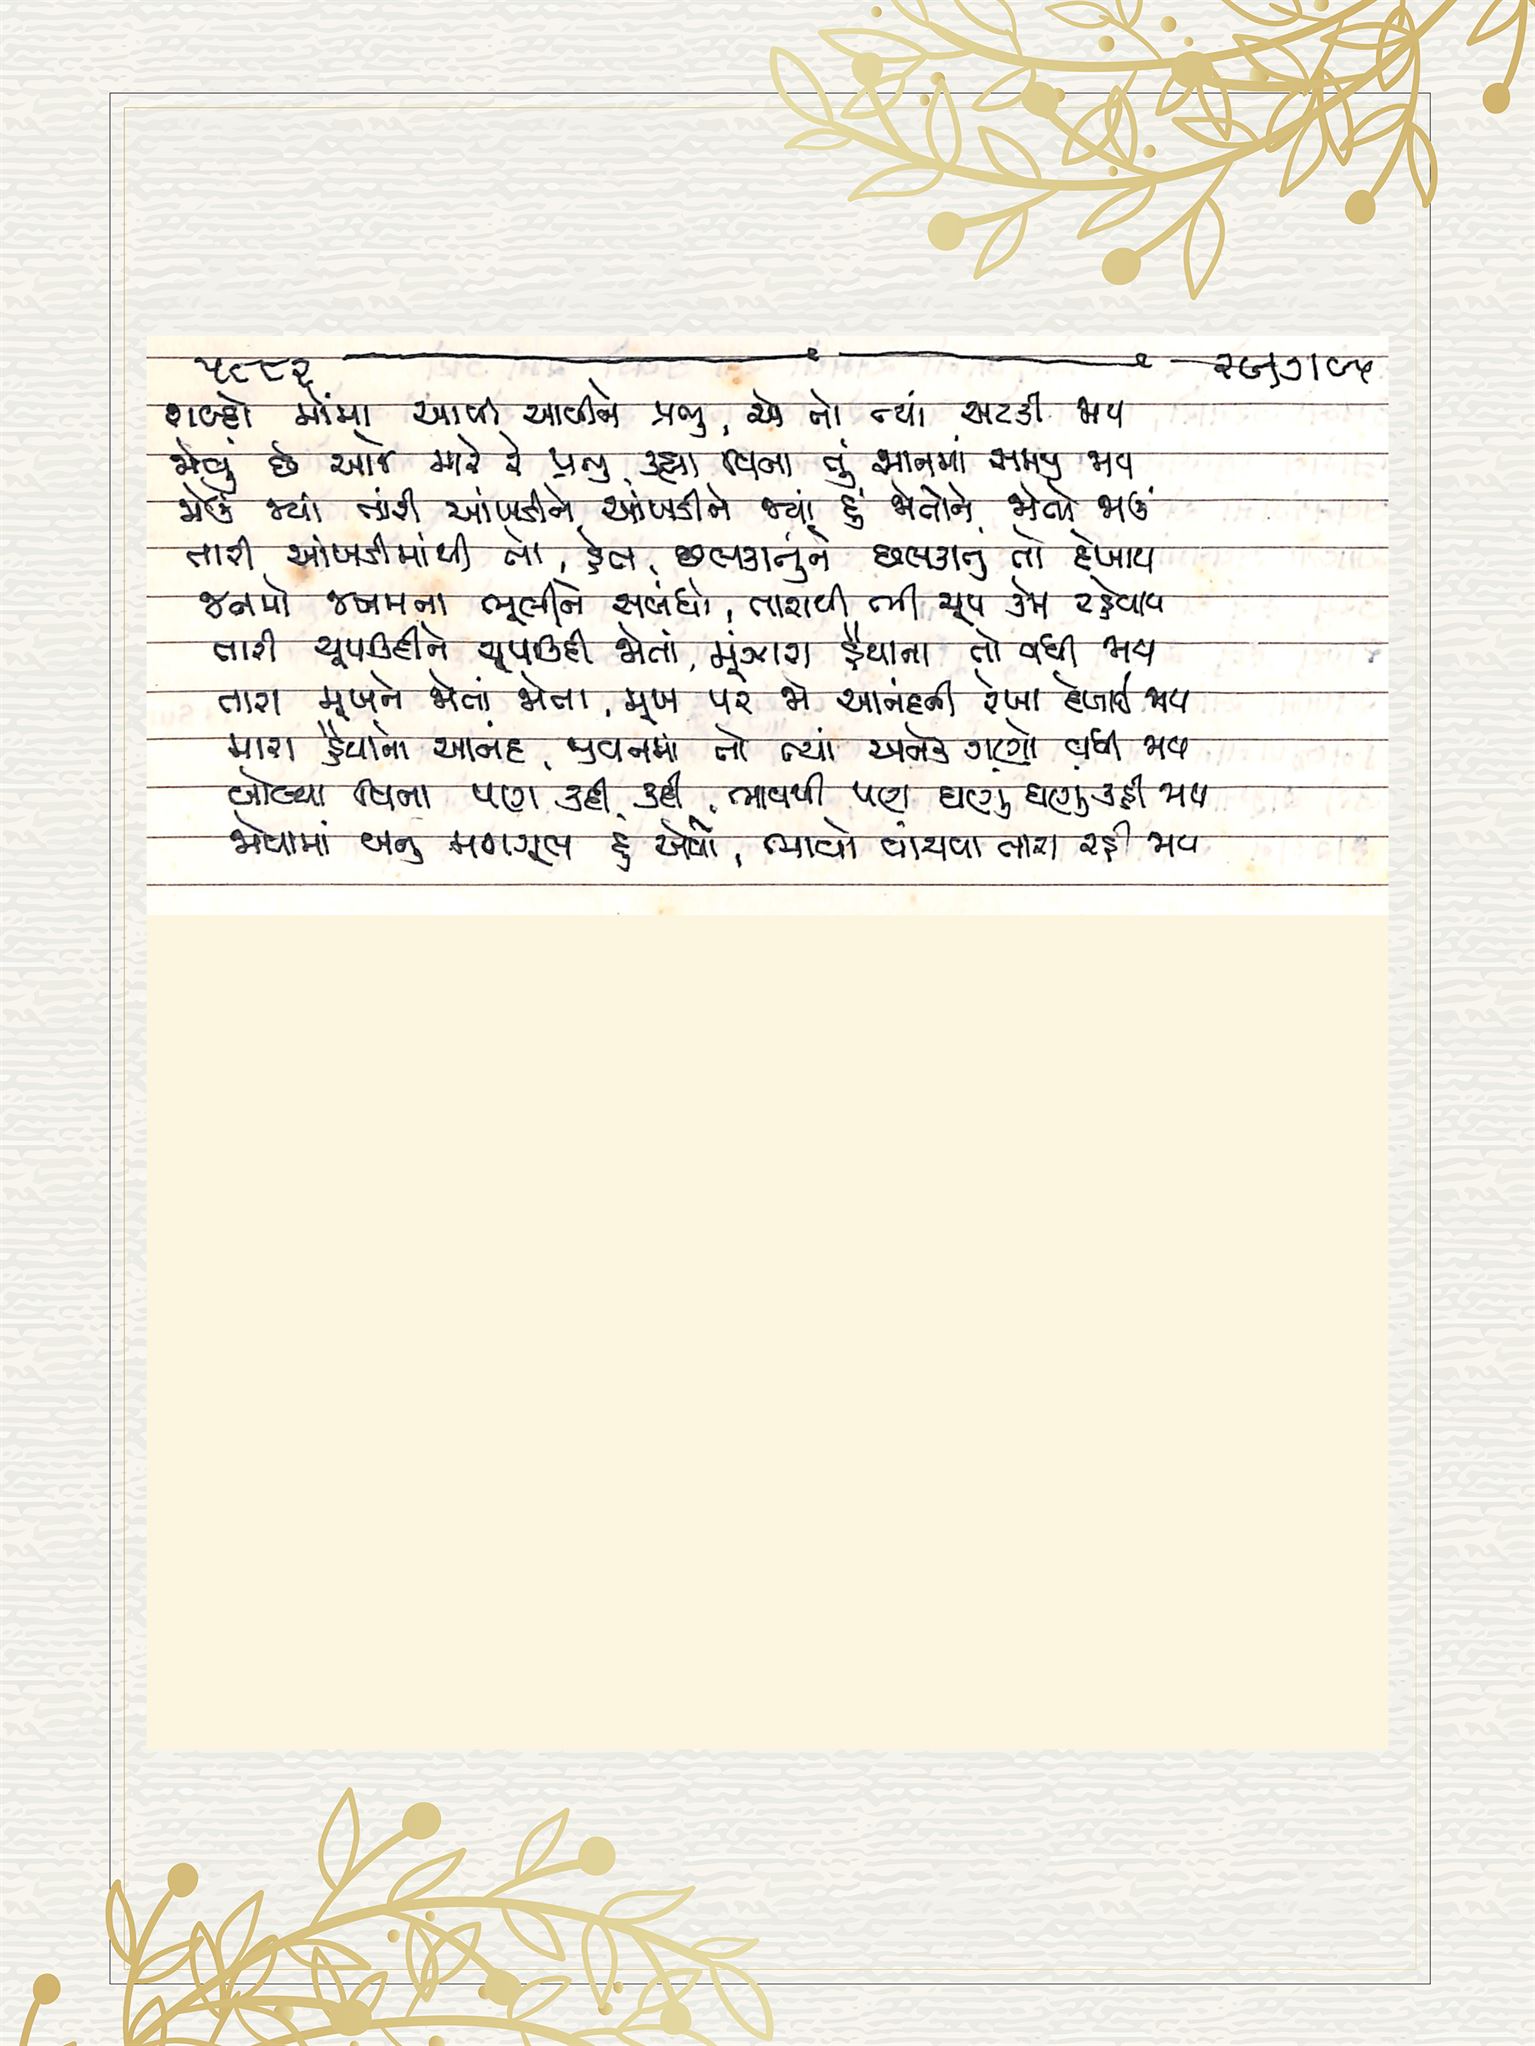 ૫૯૯૨
શબ્દો મોંમાં આવી આવીને પ્રભુ, એ તો ત્યાં અટકી જાય
જોવું છે આજે મારે રે પ્રભુ કહ્યા વિના તું શાનમાં સમજી જાય
જોઉં જ્યાં તારી આંખડીને, આંખડીને જ્યાં હું જોતોને જોતો જાઉં
તારી આંખડીમાંથી તો, હેત છલકાતુંને છલકાતું તો દેખાય
જનમો જનમના ભૂલીને સબંધો, તારાથી ભી ચૂપ કેમ રહેવાય
તારી ચૂપકિદીને ચૂપકિદી જોતાં, મૂંઝારા હૈયાના તો વધી જાય
તારા મુખને જોતાં જોતા, મુખ પર જો આનંદની રેખા દેખાઈ જાય
મારા હૈયાનો આનંદ, જીવનમાં તો ત્યાં અનેક ગણો વધી જાય
બોલ્યા વિના પણ કદી કદી, ભાવથી પણ ઘણું ઘણું કહી જાય
જોવામાં બનુ મશગૂલ હું એવો, ભાવો વાંચવા તારા રહી જાય